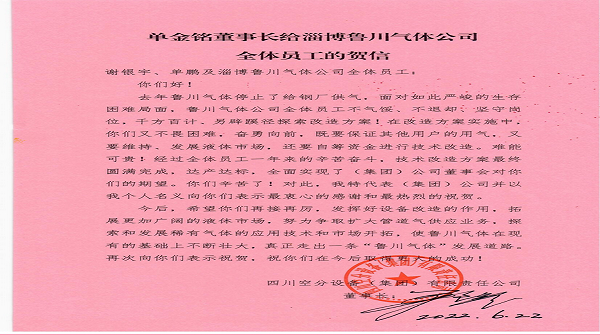 单金铭董事长给淄博鲁川气体公司
全体员工的贺信
谢银宇、单鹏及淄博鲁川气体公司全体员工：
你们好！
去年鲁川气体停止了给钢厂供气，面对如此严峻的生存
困难局面，鲁川气体公司全体员工不气馁、不退却、坚守岗
位，千方百计、另辟蹊径探索改造方案！在改造方案实施中，
你们又不畏困难，奋勇向前，既要保证其他用户的用气，又
要维持、发展液体市场，还要自筹资金进行技术改造。难能
可贵！经过全体员工一年来的辛苦奋斗，技术改造方案最终
圆满完成，达产达标，全面实现了（集团）公司董事会对你
们的期望。你们辛苦了！对此，我特代表（集团）公司并以
我个人名义向你们表示最衷心的感谢和最热烈的祝贺。
今后，希望你们再接再厉，发挥好设备改造的作用，拓
展更加广阔的液体市场，努力争取扩大管道气供应业务，探
索和发展稀有气体的应用技术和市场开拓，使鲁川气体在现
有的基础上不断壮大，真正走出一条“鲁川气体”发展道路。
再次向你们表示祝贺，祝你们在今后取得更大的成功！
四川空分设备（集团）有限责任公司
董事长：
2022.6.22